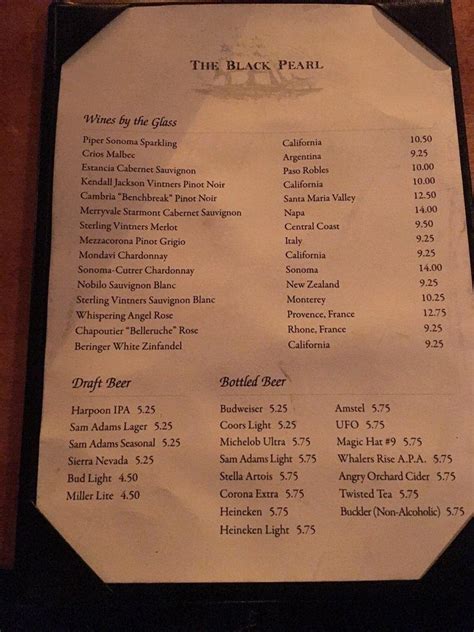 THE BLACK PEARL
Wines by the Glass
Piper Sonoma Sparkling California 10.50
Crios Malbec Argentina 9.25
Estancia Cabernet Sauvignon Paso Robles 10.00
Kendall Jackson Vintners Pinot Noir California 10.00
Cambria "Benchbreak" Pinot Noir Santa Maria Valley 12.50
Merryvale Starmont Cabernet Sauvignon Napa 14.00
Sterling Vintners Merlot Central Coast 9.50
Mezzacorona Pinot Grigio Italy 9.25
Mondavi Chardonnay California 9.25
Sonoma-Cutrer Chardonnay Sonoma 14.00
Nobilo Sauvignon Blanc New Zealand 9.25
Sterling Vintners Sauvignon Blanc Monterey 10.25
Whispering Angel Rose Provence, France 12.75
Chapoutier "Belleruche" Rose Rhone, France 9.25
Beringer White Zinfandel California 9.25
Draft Beer
Harpoon IPA 5.25
Sam Adams Lager 5.25
Sam Adams Seasonal 5.25
Sierra Nevada 5.25
Bud Light 4.50
Miller Lite 4.50
Bottled Beer
Budweiser 5.25
Coors Light 5.25
Michelob Ultra 5.75
Sam Adams Light 5.75
Stella Artois 5.75
Corona Extra 5.75
Heineken 5.75
Heineken Light 5.75
Amstel 5.75
UFO 5.75
Magic Hat #9 5.75
Whalers Rise A.P.A. 5.75
Angry Orchard Cider 5.75
Twisted Tea 5.75
Buckler (Non-Alcoholic) 5.75